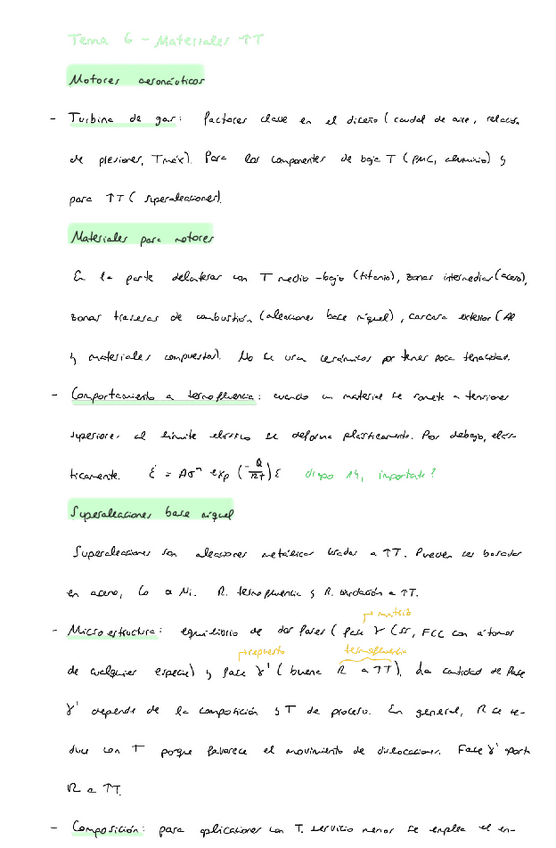 Tema 6 - Materiales ↑T
Motores aeronáuticos
- Turbina de gas: factores clave en el diseño (caudal de aire, relación
de presiones, Tmáx). Para los componentes de baja T (PMC, aluminio) y
para ↑T (superaleaciones).
Materiales para motores
En la parte delantera con T medio-bajo (titanio), zonas intermedias (acero),
zonas traseras de combustión (aleaciones base níquel), carcasa exterior (Al
y materiales compuestos). No se usan cerámicos por tener poca tenacidad.
- Comportamiento a termofluencia: cuando un material se somete a tensiones
superiores al límite elástico se deforma plásticamente. Por debajo, elás-
ticamente. ε̇ = Aσⁿ exp (-Q/RT) ε diapo 14, importante?
Superaleaciones base níquel
Superaleaciones son aleaciones metálicas usadas a ↑T. Pueden ser basadas
en acero, Co o Ni. R. termofluencia y R. oxidación a ↑T.
matriz
- Microestructura: equilibrio de dos fases (fase γ (ss, FCC con átomos
precipitado termofluencia
de cualquier especie) y fase γ' (buena R a ↑T). La cantidad de fase
γ' depende de la composición y T de proceso. En general, R se re-
duce con T porque favorece el movimiento de dislocaciones. Fase γ' aporta
R a ↑T.
- Composición: para aplicaciones con T. servicio menor se emplea el en-